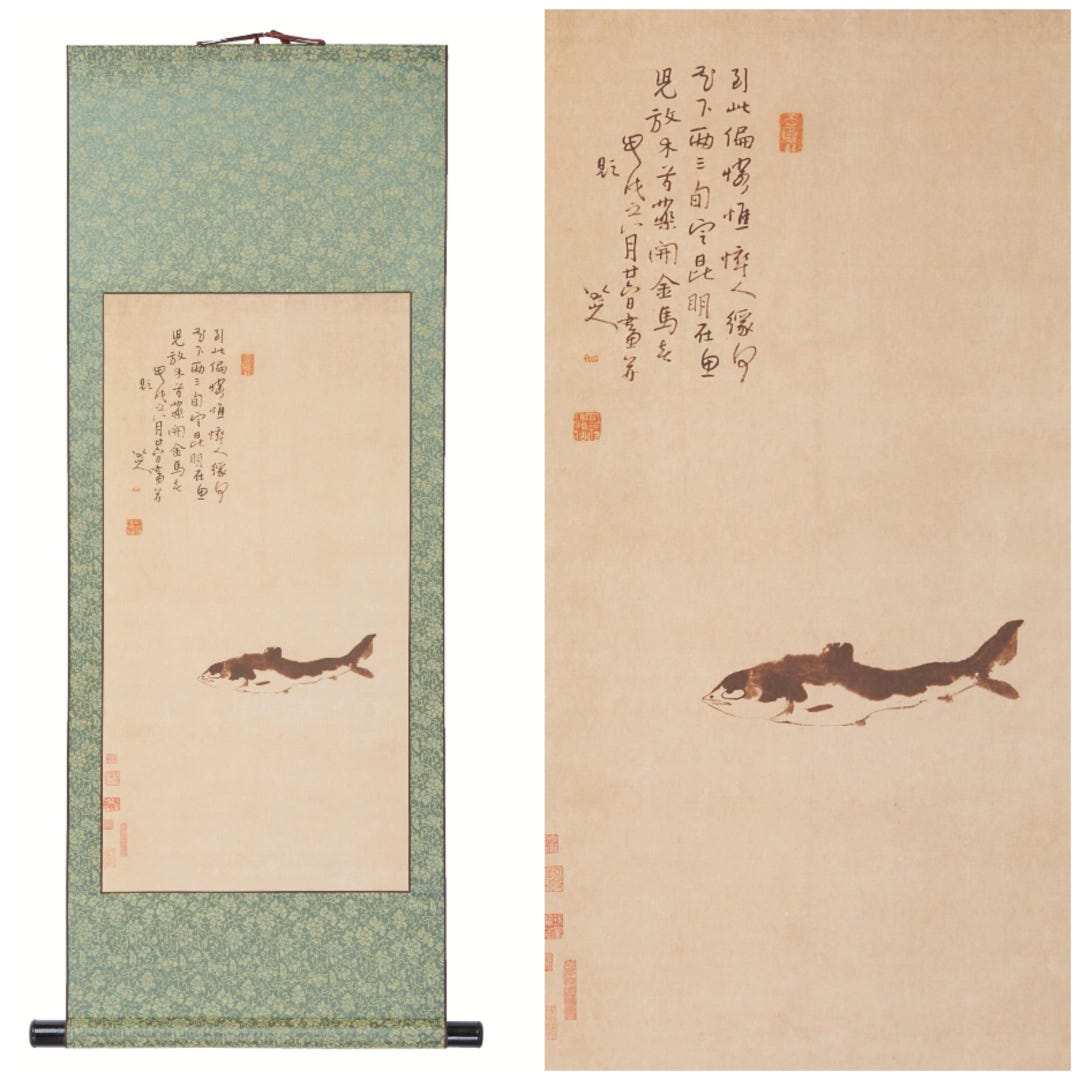 到此偏憐憔悴人緣何
花下兩三旬定昆明在魚
兒放木芍藥開金馬春
甲戌之八月廿六日畫并
題
八大山人
到此偏憐憔悴人緣何
花下兩三旬定昆明在魚
兒放木芍藥開金馬春
甲戌之八月廿六日畫并
題
八大山人